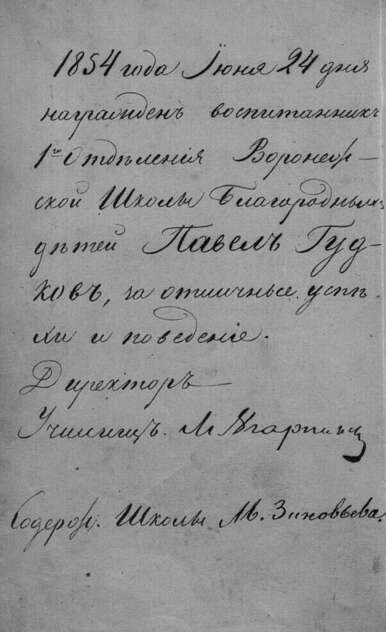 1854 года Iюня 24 дня
награжденъ воспитанникъ
1го Отдѣленiя Воронеж-
ской Школы Благородныхъ
дѣтей Павелъ Гуд-
ковъ, за отличные успѣ
хи и поведенiе.
Директоръ
Училищъ. М
Содерж. Школы М. Зиновьева.